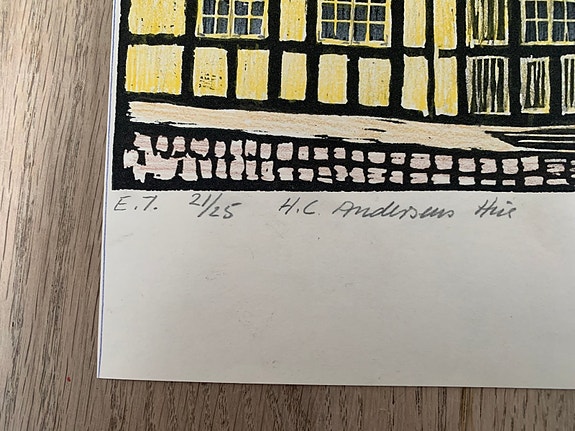 E.T. 21/25 H.C. Andersens Hus